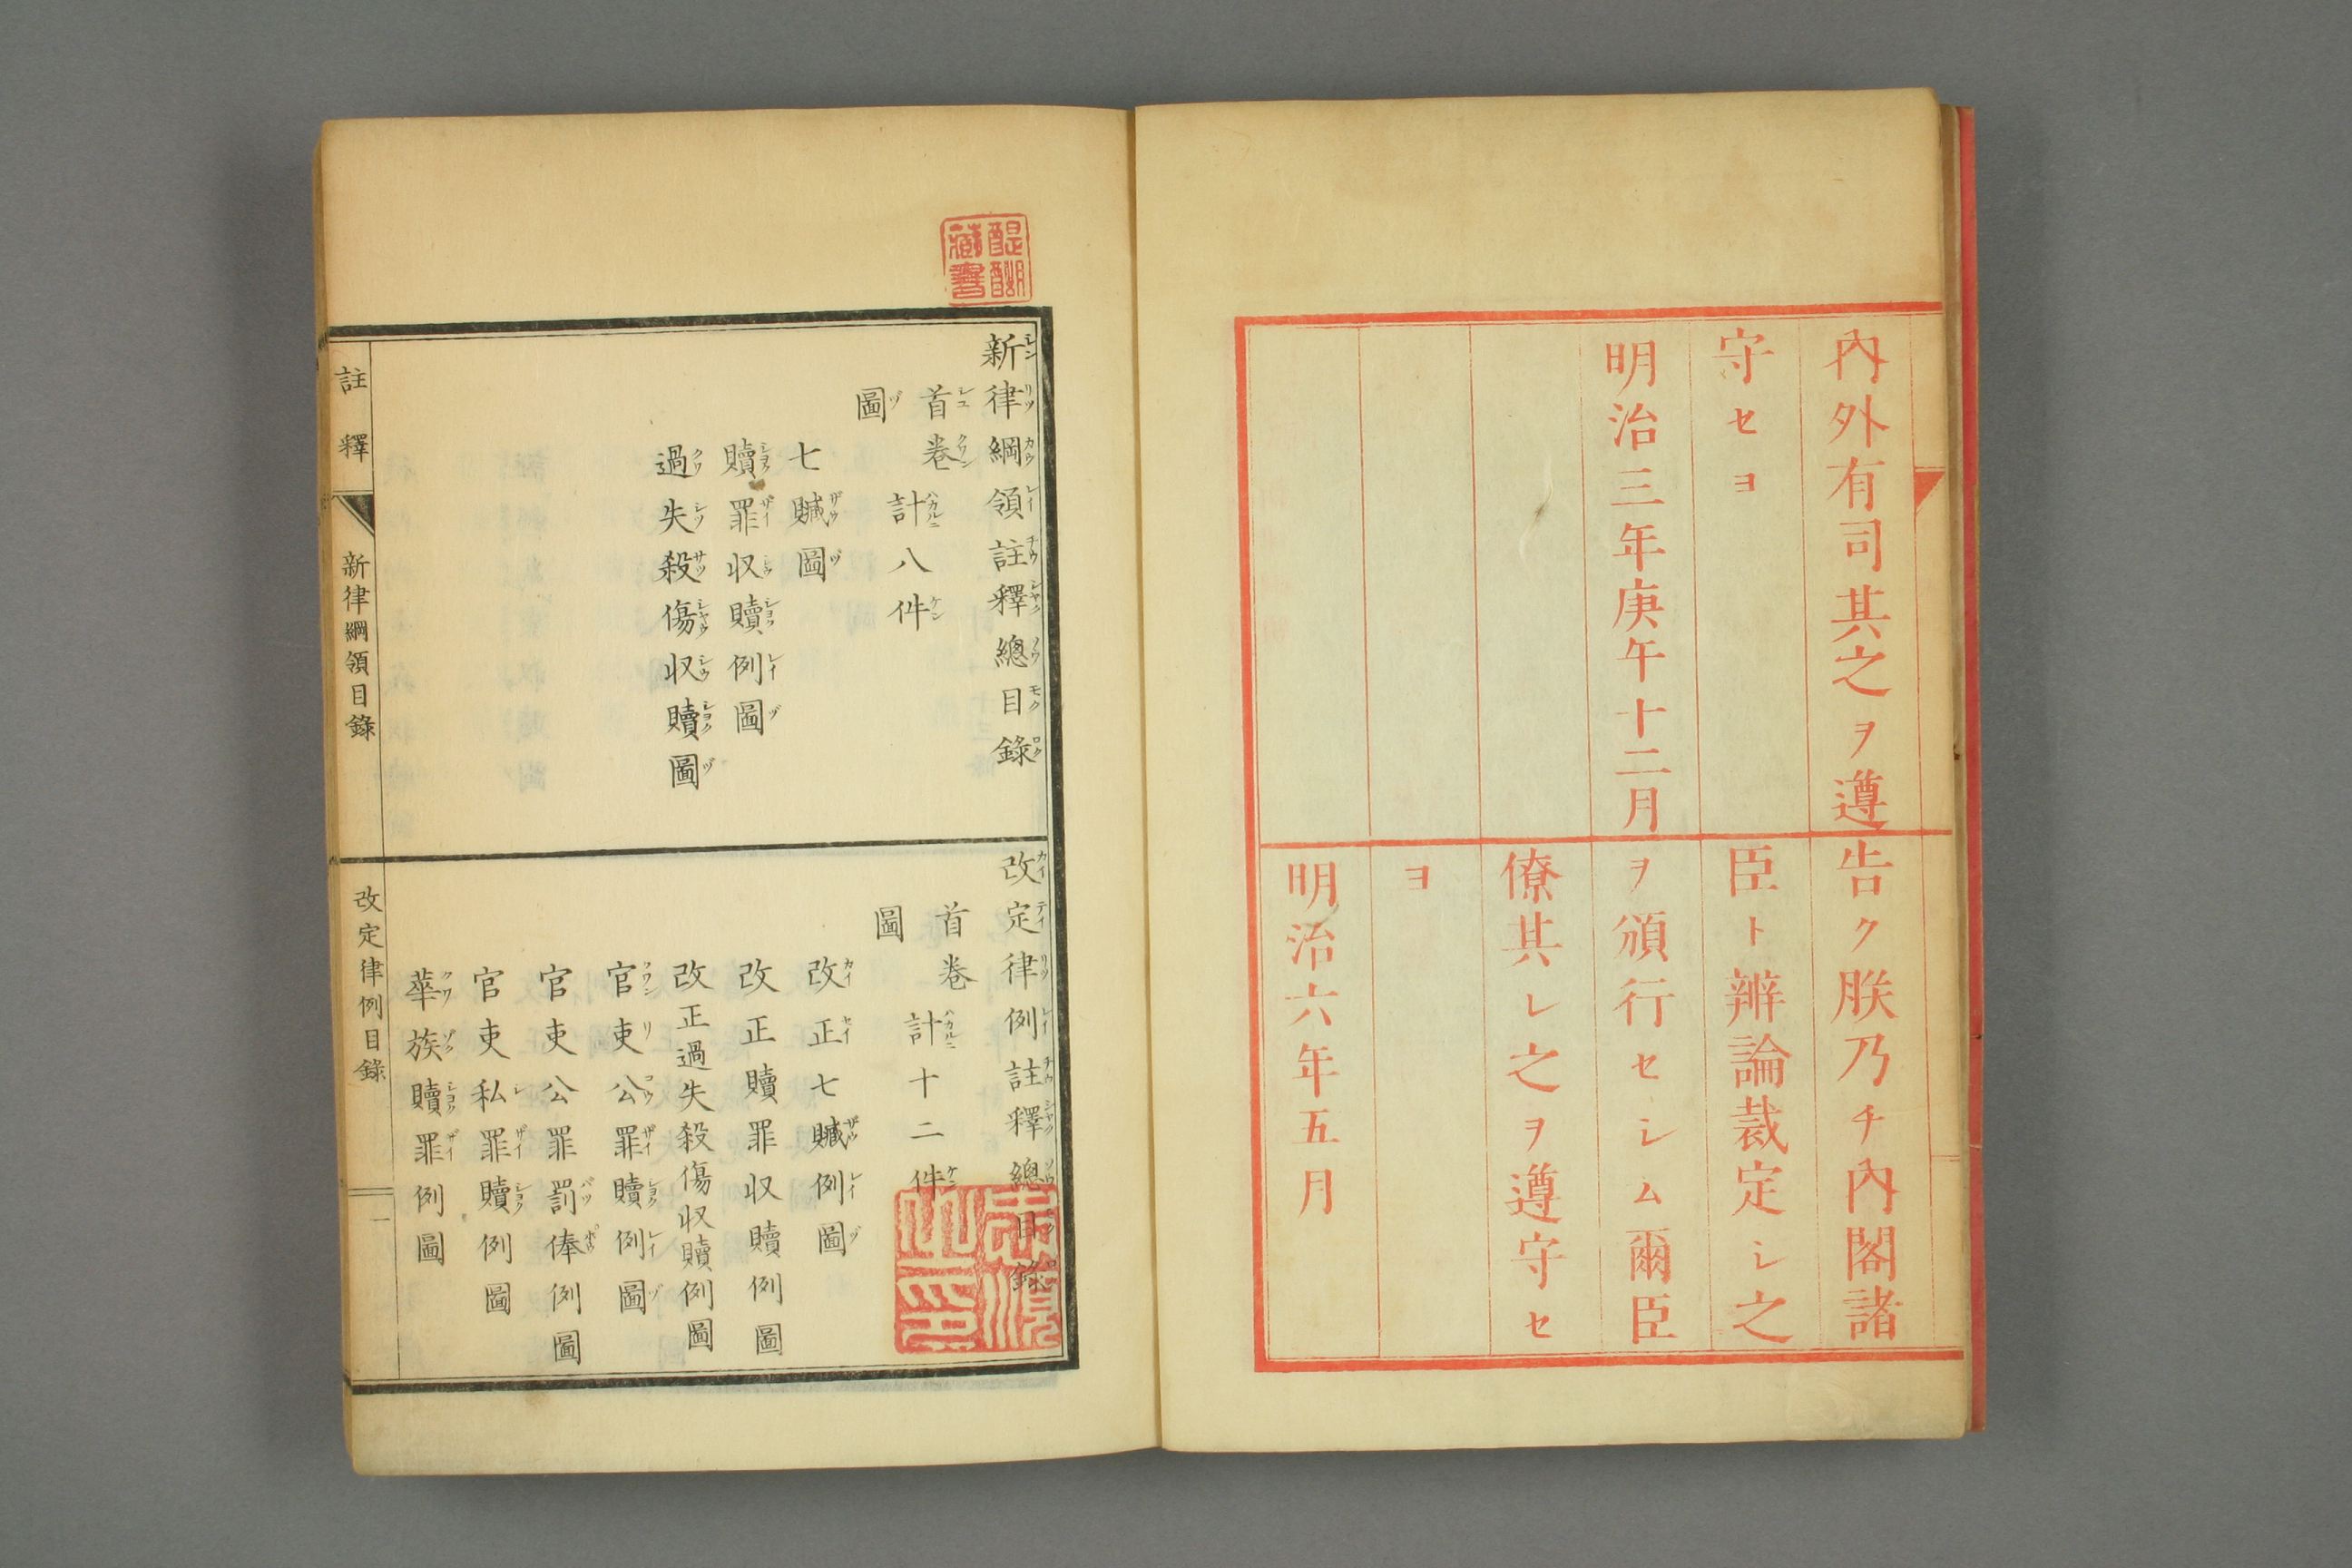 內外有司其之ヲ遵
守セヨ
明治三年庚午十二月
告ク朕乃チ內閣諸
臣ト辨論裁定シ之
ヲ頒行セシム爾臣
僚其レ之ヲ遵守セ
ヨ
明治六年五月
醍醐
藏書
新律綱領註釋總目錄
首卷
計八件
圖
七贓圖
贖罪収贖例圖
過失殺傷収贖圖
改定律例註釋總目錄
首卷
計十二件
圖
改正七贓例圖
改正贖罪収贖例圖
改正過失殺傷収贖例圖
官吏公罪贖例圖
官吏公罪罰俸例圖
官吏私罪贖例圖
華族贖罪例圖
註釋
新律綱領目錄
改定律例目錄
一